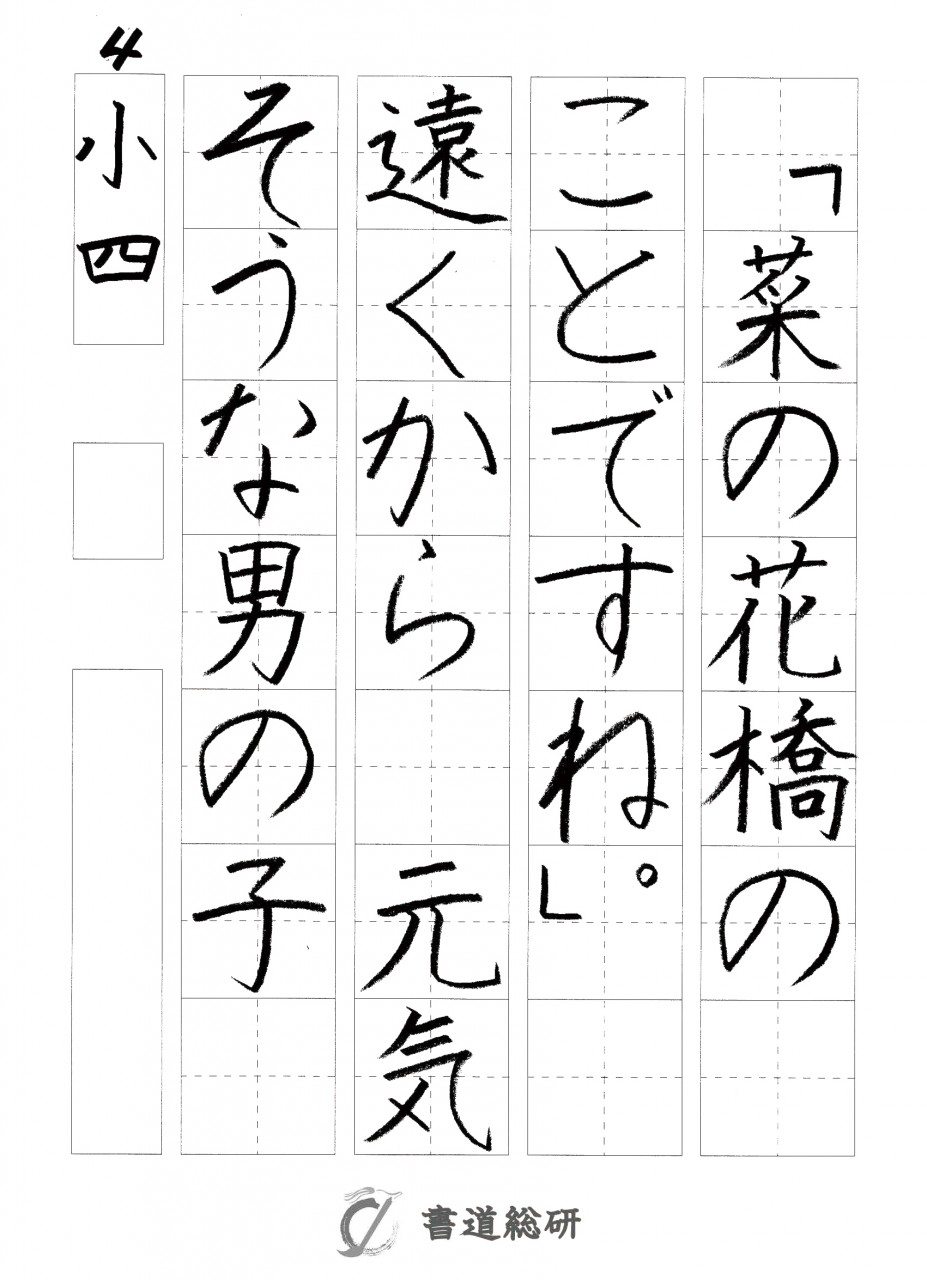 「菜の花橋の
ことですね」。
遠くから　元気
そうな男の子
4
小四
書道総研